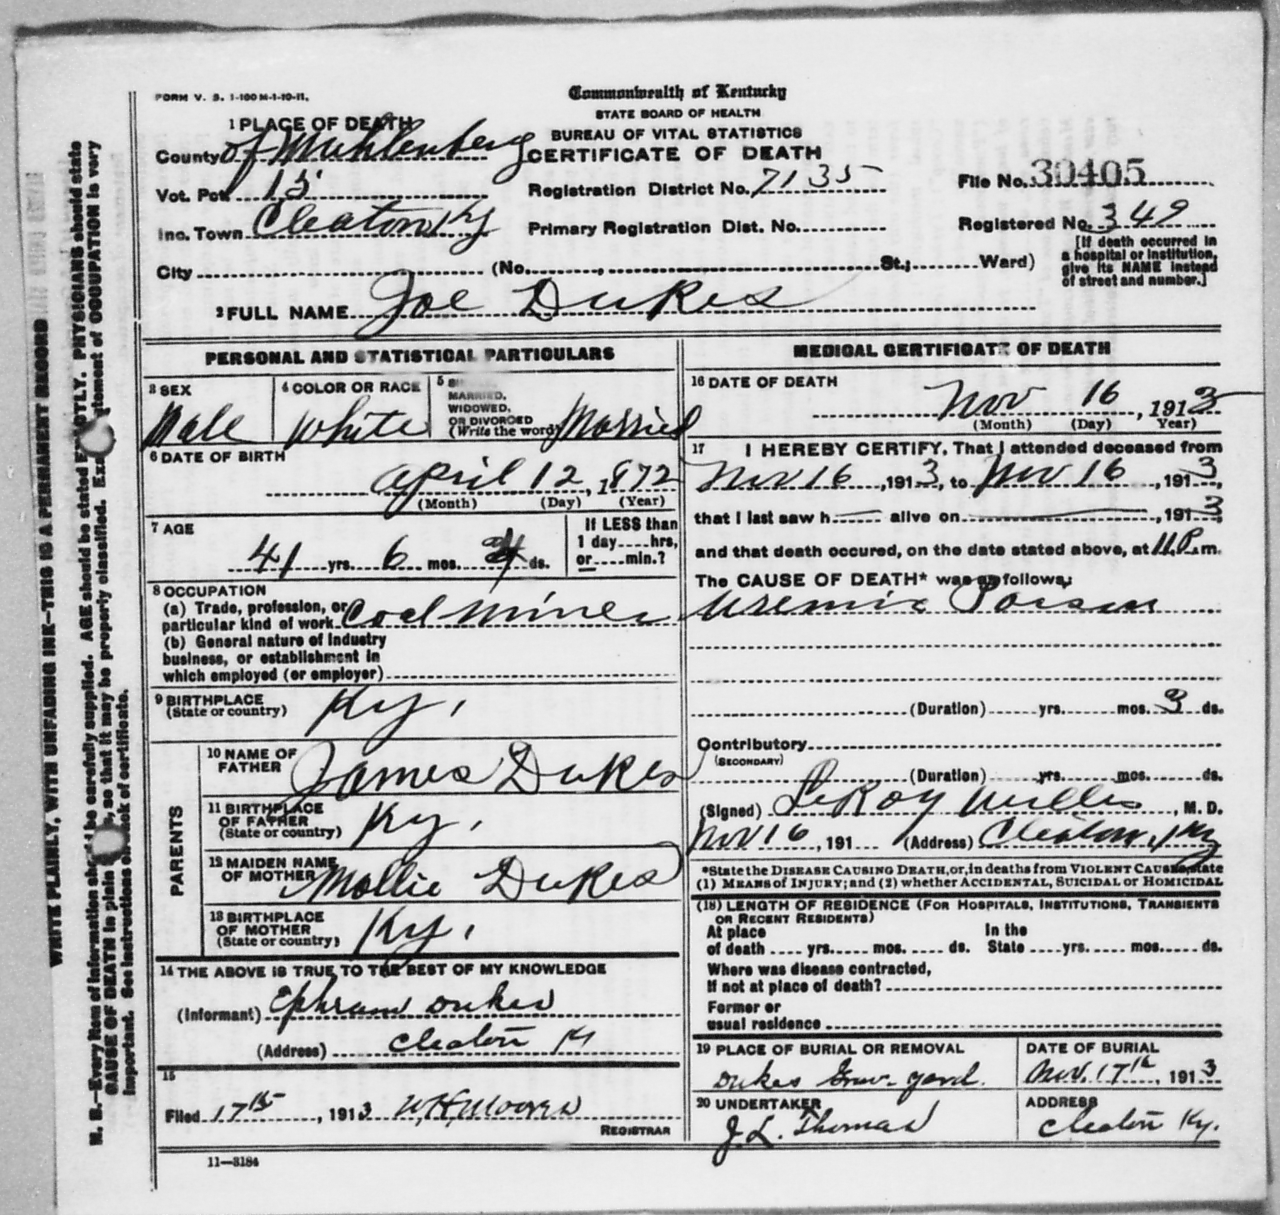 FORM V. S. 1-100 M-1-10-11.
Commonwealth of Kentucky
STATE BOARD OF HEALTH
BUREAU OF VITAL STATISTICS
CERTIFICATE OF DEATH
1 PLACE OF DEATH
County of Muhlenberg
Vot. Pct. 15
Registration District No. 7135
File No. 30405
Inc. Town Cleaton Ky
Primary Registration Dist. No.
Registered No. 349
City (No. , St.; Ward)
[If death occurred in
a hospital or institution,
give its NAME instead
of street and number.]
2 FULL NAME Joe Dukes
PERSONAL AND STATISTICAL PARTICULARS
3 SEX
Male
4 COLOR OR RACE
White
5
MARRIED,
WIDOWED,
OR DIVORCED
(Write the word) Married
6 DATE OF BIRTH
April 12, 1872
(Month) (Day) (Year)
7 AGE
41 yrs. 6 mos. 4 ds.
If LESS than
1 day....hrs,
or....min.?
8 OCCUPATION
(a) Trade, profession, or
particular kind of work Coal Miner
(b) General nature of industry
business, or establishment in
which employed (or employer)
9 BIRTHPLACE
(State or country) Ky,
PARENTS
10 NAME OF
FATHER James Dukes
11 BIRTHPLACE
OF FATHER
(State or country) Ky,
12 MAIDEN NAME
OF MOTHER Mollie Dukes
13 BIRTHPLACE
OF MOTHER
(State or country) Ky,
14 THE ABOVE IS TRUE TO THE BEST OF MY KNOWLEDGE
(Informant) Ephram Dukes
(Address) Cleaton Ky
15
Filed 17th, 1913 W.H. Moores
REGISTRAR
11-3184
MEDICAL CERTIFICATE OF DEATH
16 DATE OF DEATH
Nov 16, 1913
(Month) (Day) Year)
17 I HEREBY CERTIFY, That I attended deceased from
Nov 16, 1913, to Nov 16, 1913,
that I last saw h alive on , 1913,
and that death occured, on the date stated above, at 11 P.m.
The CAUSE OF DEATH* was as follows:
Uremic Poison
(Duration) yrs. mos. 3 ds.
Contributory
(SECONDARY)
(Duration) yrs. mos. ds.
(Signed) LeRoy Willis, M. D.
Nov 16, 191 (Address) Cleaton, Ky
*State the DISEASE CAUSING DEATH, or, in deaths from VIOLENT CAUSES, state
(1) MEANS of INJURY; and (2) whether ACCIDENTAL, SUICIDAL or HOMICIDAL
(18) LENGTH OF RESIDENCE (FOR HOSPITALS, INSTITUTIONS, TRANSIENTS
OR RECENT RESIDENTS)
At place In the
of death yrs. mos. ds. State yrs. mos. ds.
Where was disease contracted,
If not at place of death?
Former or
usual residence
19 PLACE OF BURIAL OR REMOVAL
Dukes Grav-yard.
DATE OF BURIAL
Nov. 17th, 1913
20 UNDERTAKER
J. L. Thomas
ADDRESS
Cleaton Ky.
WRITE PLAINLY, WITH UNFADING INK—THIS IS A PERMANENT RECORD
N. B.—Every item of information should be carefully supplied. AGE should be stated EXACTLY. PHYSICIANS should state
CAUSE OF DEATH in plain , so that it may be properly classified. Exact statement of OCCUPATION is very
important. See instructions on back of certificate.